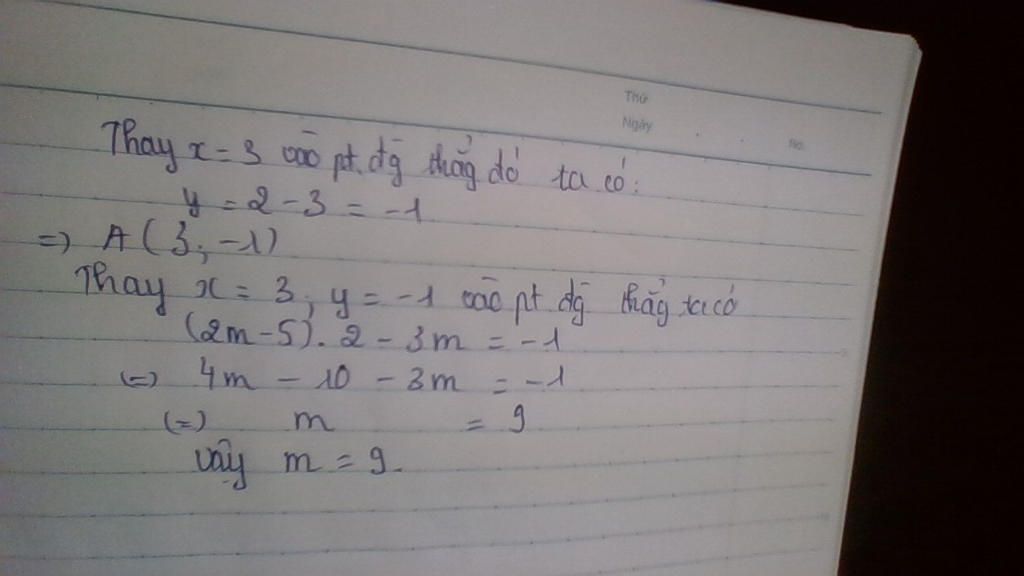 Thứ
Ngày
No.
Thay x = 3 vào pt. đg thẳg đó ta có:
y = 2 - 3 = -1
=> A (3; -1)
Thay x = 3; y = -1 vào pt đg thẳg ta có
(2m - 5). 2 - 3m = -1
(=) 4m - 10 - 3m = -1
(=) m = 9
Vậy m = 9.